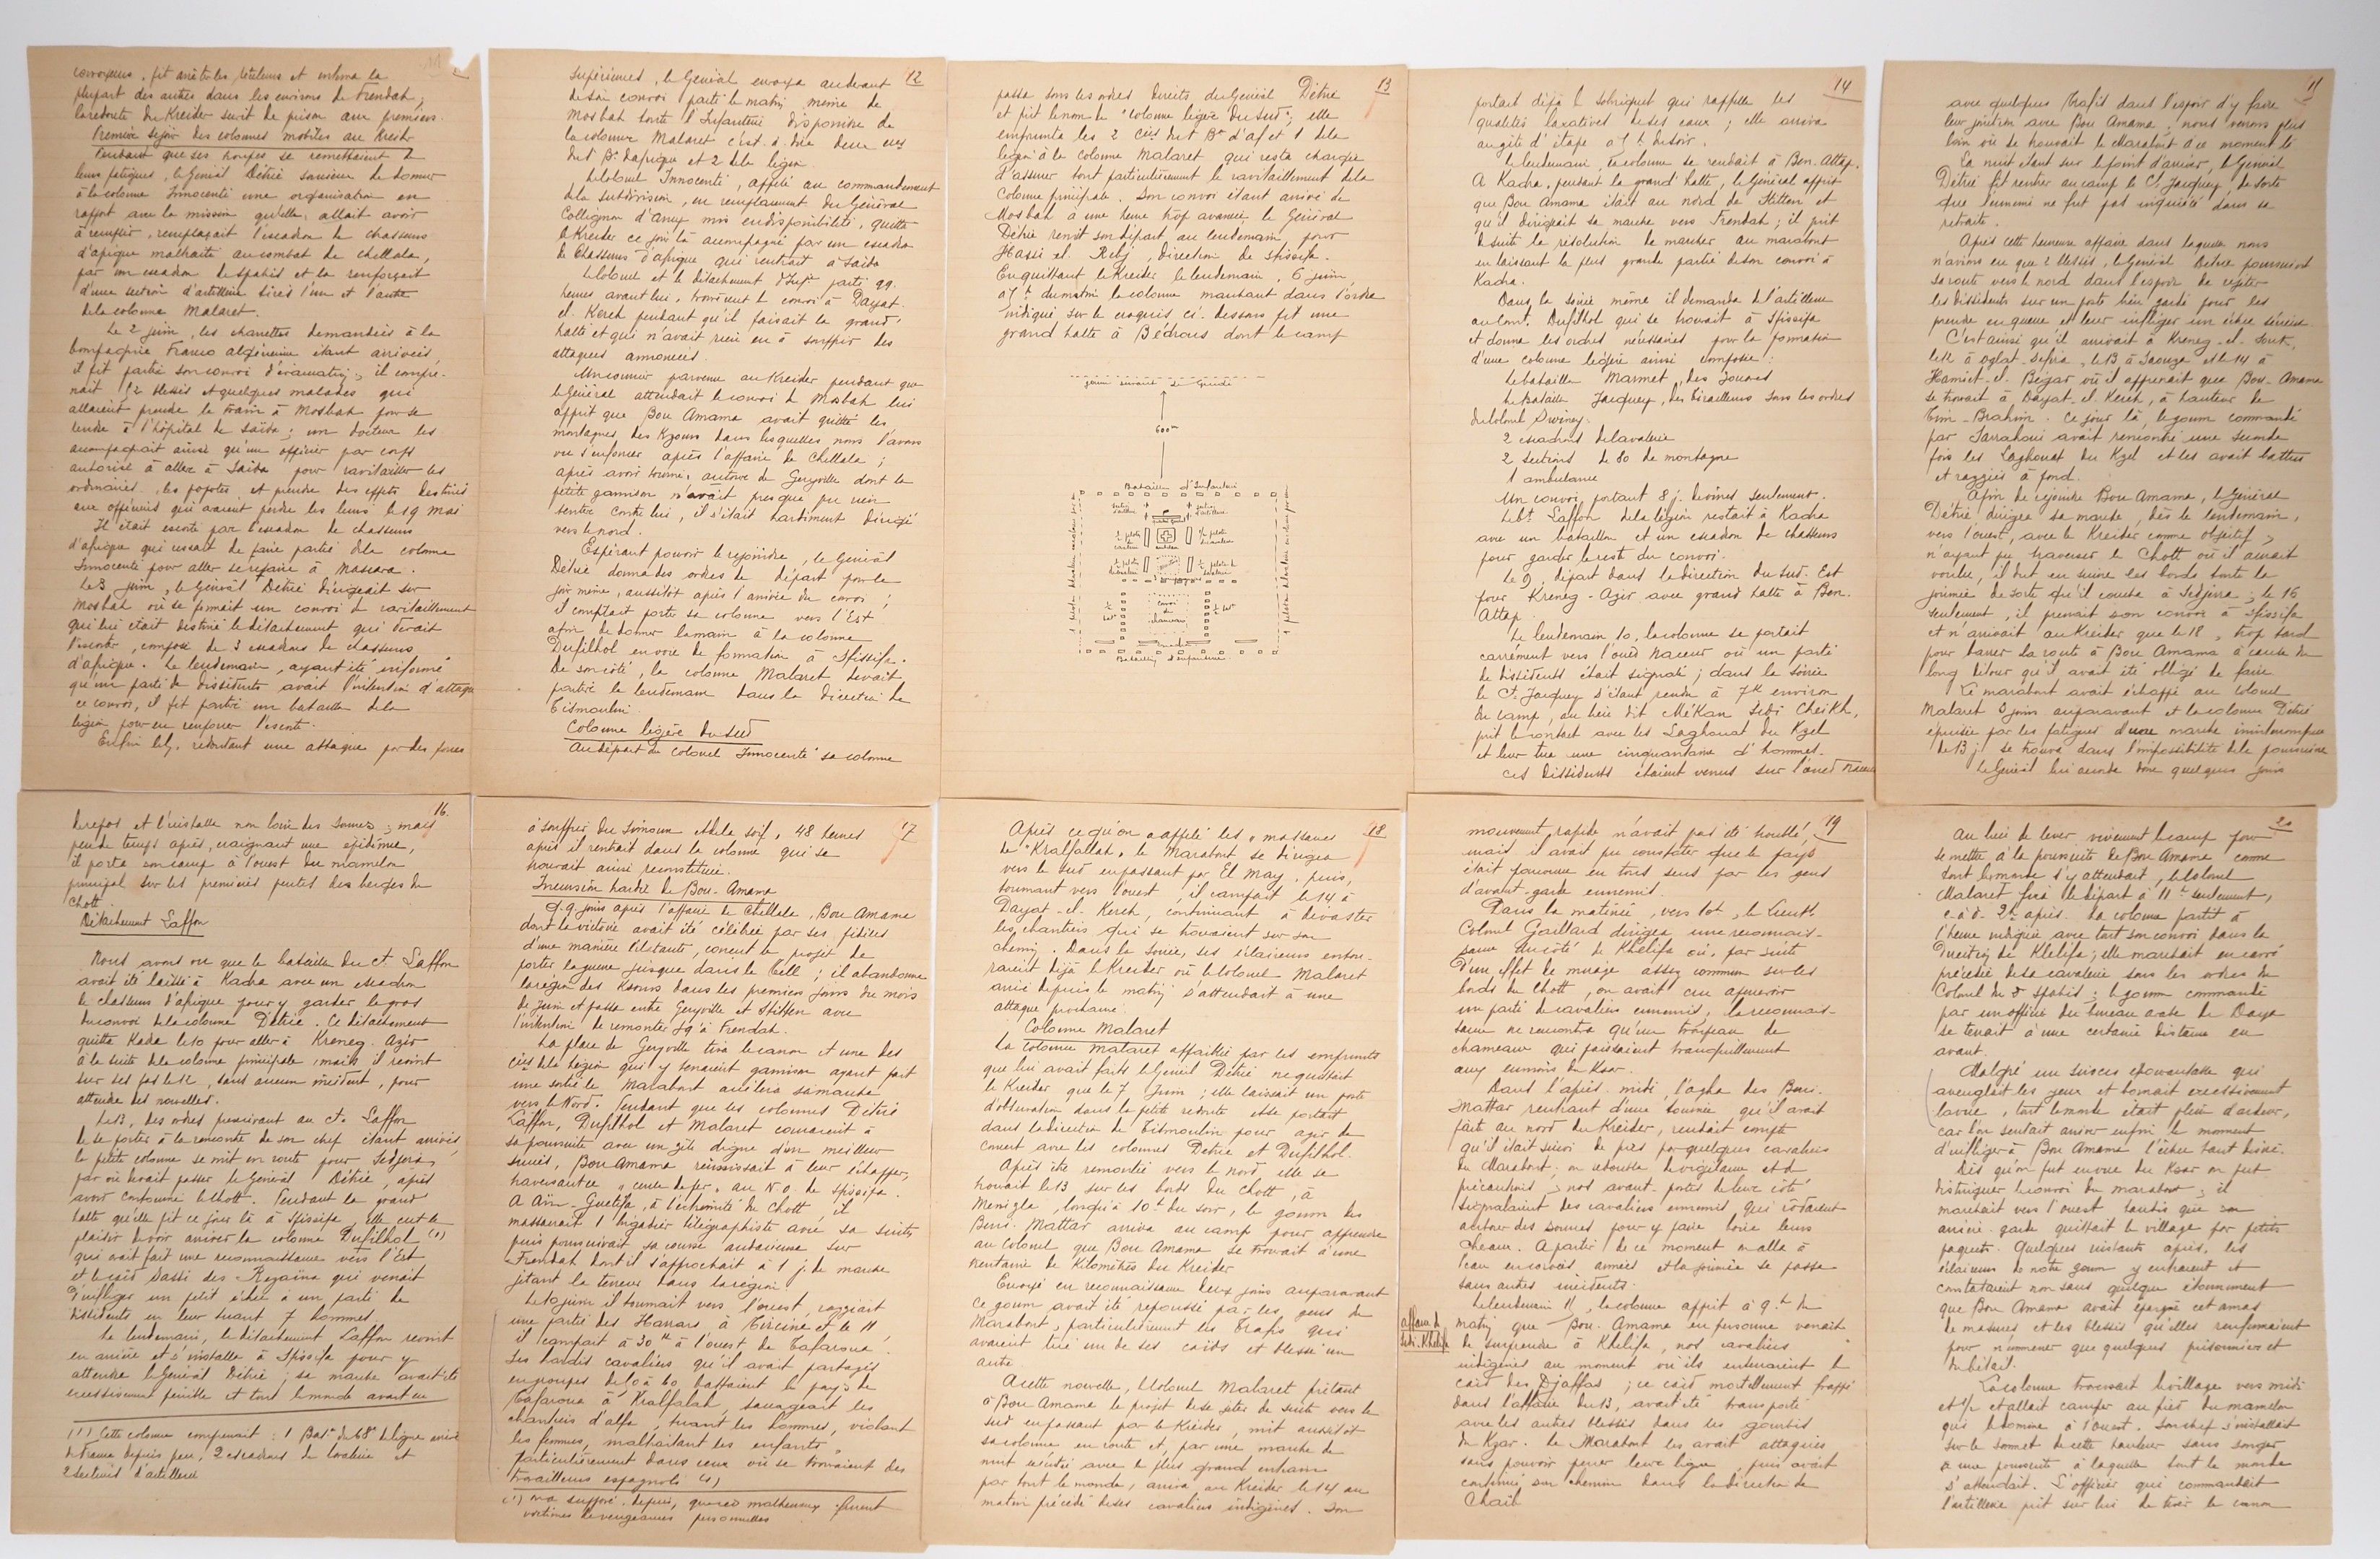 convoyeurs, fit arrêter les rétiliens et interna la
plupart des autres dans les environs de Frendah,
la redoute du Kreider servit de prison aux premiers.
Premier séjour des colonnes mobiles au Kreider
Pendant que ses troupes se remettaient de
leurs fatigues, le Général Détrié soucieux de donner
à la colonne Innocenti une organisation en
rapport avec la mission qu'elle allait avoir
à remplir, remplaçait l'escadron de chasseurs
d'afrique maltraité au combat de Chellala,
par un escadron de spahis et la renforçait
d'une section d'artillerie tirés l'un et l'autre
de la colonne Malaret.
Le 2 juin, les charrettes demandées à la
Compagnie Franco algérienne étant arrivées,
il fit partir son convoi d'évacuation, il compre-
nait 12 blessés et quelques malades qui
allaient prendre le train à Mosbah pour se
rendre à l'hôpital de Saïda; un docteur les
accompagnait ainsi qu'un officier par corps
autorisé à aller à Saïda pour ravitailler les
ordinaires, les popotes et prendre des effets destinés
aux officiers qui avaient perdu les leurs le 19 mai
Il était escorté par l'escadron de chasseurs
d'afrique qui cessait de faire partie de la colonne
Innocenti pour aller se refaire à Mascara.
Le 3 juin, le Général Détrié dirigeait sur
Mosbah où se formait un convoi de ravitaillement
qui lui était destiné le détachement qui devait
l'escorter, composé de 3 escadrons de chasseurs
d'afrique. Le lendemain, ayant été informé
qu'un parti de dissidents avait l'intention d'attaquer
ce convoi, il fit partir un bataillon de la
légion pour en renforcer l'escorte.
Enfin le 5, redoutant une attaque par des forces
12
supérieures, le Général envoya audevant
de son convoi parti le matin même de
Mosbah toute l'Infanterie disponible de
la colonne Malaret c'est-à-dire deux cies
du 1er Bon d'afrique et 2 de la légion
Le Colonel Innocenti, appelé au commandement
de la subdivision, en remplacement du Général
Collignon d'Ancy mis en disponibilité, quitta
le Kreider ce jour là accompagné par un escadron
de Chasseurs d'afrique qui rentrait à Saïda
Le Colonel et le détachement d'Infie parti 99
heures avant lui, trouvèrent le convoi à Dayat
el Kerch pendant qu'il faisait la grand'
halte et qui n'avait rien eu à souffrir des
attaques annoncées.
Un courrier parvenu au Kreider pendant que
le Général attendait le convoi de Mosbah lui
apprit que Bou Amama avait quitté les
montagnes des Ksours dans lesquelles nous l'avons
vu s'enfoncer après l'affaire de Chellala;
après avoir tourné autour de Geryville dont la
petite garnison n'avait presque pu rien
tenter contre lui, il s'était hardiment dirigé
vers le nord.
Espérant pouvoir le rejoindre, le Général
Détrié donna des ordres de départ pour le
jour même, aussitôt après l'arrivée du convoi;
il comptait porter sa colonne vers l'Est
afin de donner la main à la colonne
Dufilhol en voie de formation à Sfissifa.
De son côté, la colonne Malaret devait
partir le lendemain dans la direction de
Tismoulin.
Colonne légère du Sud
Au départ du Colonel Innocenti sa colonne
13
passa sous les ordres directs du Général Détrié
et prit le nom de "colonne légère du Sud", elle
emprunta les 2 cies du 1er Bon d'af et 1 de la
légion à la colonne Malaret qui resta chargée
d'assurer tout particulièrement le ravitaillement de la
Colonne principale. Son convoi étant arrivé de
Mosbah à une heure trop avancée, le Général
Détrié remit son départ au lendemain pour
Hassi el Relj, direction de Sfissifa.
En quittant le Kreider le lendemain, 6 juin
à 5h du matin la colonne marchant dans l'ordre
indiqué sur le croquis ci-dessous fit une
grand halte à Bédrous dont le camp
goum suivant le Guide
600m
Bataillon d'Infanterie
convoi
de
chameaux
Bataillon d'Infanterie
14
portait déjà le sobriquet qui rappelle les
qualités laxatives de ses eaux; elle arriva
au gîte d'étape à 5h du soir.
Le lendemain, la colonne se rendait à Ben-Attap.
A Kadra, pendant la grand'halte, le Général apprit
que Bou Amama était au nord de Stitten et
qu'il dirigeait sa marche vers Frendah; il prit
de suite la résolution de marcher au marabout
en laissant la plus grande partie de son convoi à
Kadra.
Dans la soirée même il demanda de l'artillerie
au Cont Dufilhol qui se trouvait à Sfissifa
et donna les ordres nécessaires pour la formation
d'une colonne légère ainsi composée:
Le bataillon Marmet, des Zouaves
Le bataillon Jacquey, des tirailleurs sous les ordres
du Colonel Swiney.
2 escadrons de cavalerie
2 sections de 80 de montagne
1 ambulance
Un convoi portant 8 j. de vivres seulement.
Le bt Laffon de la légion restait à Kadra
avec un bataillon et un escadron de chasseurs
pour garder le reste du convoi.
Le 9, départ dans la direction du Sud-Est
pour Kreneg-Azir avec grand halte à Ben
Attap.
Le lendemain 10, la colonne se portait
carrément vers l'oued Naceur où un parti
de dissidents était signalé; dans la soirée
le Ct Jacquey s'étant rendu à 7k environ
du camp, au lieu dit Mékan Sidi Cheikh,
prit le contact avec les Laghouat du Kzel
et leur tua une cinquantaine d'hommes.
Ces dissidents étaient venus sur l'oued Naceur
avec quelques trafis dans l'espoir d'y faire
leur jonction avec Bou Amama; nous verrons plus
loin où se trouvait le Marabout à ce moment là
La nuit étant sur le point d'arriver, le Général
Détrié fit rentrer au camp le Ct Jacquey, de sorte
que l'ennemi ne fut pas inquiété dans sa
retraite.
Après cette heureuse affaire dans laquelle nous
n'avions eu que 2 blessés, le Général Détrié poursuivit
sa route vers le nord dans l'espoir de rejeter
les dissidents sur un poste bien gardé pour les
prendre en queue et leur infliger un échec sérieux
C'est ainsi qu'il arrivait à Kreneg-el-Souk,
le 12 à Oglat-Sefria, le 13 à Taouza et le 14 à
Hamiet-el-Begar où il apprenait que Bou-Amama
se trouvait à Dayat-el-Kerch, à hauteur de
Tim-Brahim. Ce jour là, le goum commandé
par Sarraoui avait rencontré une seconde
fois les Laghouat du Kzel et les avait battus
et razziés à fond.
Afin de rejoindre Bou Amama, le Général
Détrié dirigea sa marche, dès le lendemain,
vers l'ouest, avec le Kreider comme objectif;
n'ayant pu traverser le Chott où il aurait
voulu, il dut en suivre les bords toute la
journée de sorte qu'il coucha à Sedjera; le 16
seulement, il prenait son convoi à Sfissifa
et n'arrivait au Kreider que le 18, trop tard
pour barrer la route à Bou Amama à cause du
long détour qu'il avait été obligé de faire
Le marabout avait échappé au Colonel
Malaret 3 jours auparavant et la colonne Détrié
épuisée par les fatigues d'une marche ininterrompue
de 13 j. se trouva dans l'impossibilité de le poursuivre
Le Général lui accorda donc quelques jours
16.
de repos et l'installa non loin des sources; mais
peu de temps après, craignant une épidémie,
il porta son camp à l'ouest du mamelon
principal sur les premières pentes des berges du
Chott.
Détachement Laffon
Nous avons vu que le bataillon du Ct Laffon
avait été laissé à Kadra avec un escadron
de chasseurs d'afrique pour y garder le gros
du convoi de la colonne Détrié. Ce détachement
quitta Kadra le 10 pour aller à Kreneg-Azir
à la suite de la colonne principale, mais il revint
sur ses pas le 12, sans aucun incident, pour
attendre des nouvelles.
Le 13, des ordres prescrivant au Ct Laffon
de se porter à la rencontre de son chef étant arrivés,
la petite colonne se mit en route pour Sedjera,
par où devait passer le Général Détrié, après
avoir contourné le Chott. Pendant la grand
halte qu'elle fit ce jour là à Sfissifa, elle eut le
plaisir de voir arriver la colonne Dufilhol (1)
qui avait fait une reconnaissance vers l'Est
et le caïd Sassi des Rezaïna qui venait
d'infliger un petit échec à un parti de
dissidents en leur tuant 7 hommes.
Le lendemain, le détachement Laffon revint
en arrière et s'installa à Sfissifa pour y
attendre le Général Détrié; sa marche avait été
excessivement pénible et tout le monde avait eu
(1) Cette colonne comprenait: 1 Baton du 68e de ligne arrivé
de France depuis peu, 2 escadrons de cavalerie et
2 sections d'artillerie
17
à souffrir du simoun et de la soif. 48 heures
après il rentrait dans la colonne qui se
trouvait ainsi reconstituée.
Incursion hardie de Bou-Amama
Q.q jours après l'affaire de Chellala, Bou Amama
dont la victoire avait été célébrée par ses fidèles
d'une manière éclatante, conçut le projet de
porter la guerre jusque dans le Tell; il abandonna
la région des Ksours dans les premiers jours du mois
de juin et passa entre Geryville et Stitten avec
l'intention de remonter jq'à Frendah.
La place de Geryville tira le canon et une des
Cies de la légion qui y tenaient garnison ayant fait
une sortie le Marabout accéléra sa marche
vers le Nord. Pendant que les colonnes Détrié
Laffon, Dufilhol et Malaret couraient à
sa poursuite avec un zèle digne d'un meilleur
succès, Bou Amama réussissait à leur échapper,
traversant ce "cercle de fer" au N.O. de Sfissifa.
A Aïn-Guetifa, à l'extrémité du Chott, il
massacrait 1 brigadier télégraphiste avec sa suite
puis poursuivait sa course audacieuse sur
Frendah dont il s'approchait à 1 j. de marche
jetant la terreur dans la région.
Le 10 juin il tournait vers l'ouest, razziait
une partie des Harrars à Tircine et le 11,
il campait à 30k à l'ouest de Tafaroua.
Ses hardis cavaliers qu'il avait partagés
en groupes de 10 à 60 battaient le pays de
Tafaroua à Kralfalah, saccageant les
chantiers d'alfa, tuant les hommes, violant
les femmes, maltraitant les enfants,
particulièrement dans ceux où se trouvaient des
travailleurs espagnols (1)
(1) On a supposé, depuis, que ces malheureux furent
victimes de vengeances personnelles
18
Après ce qu'on a appelé les "massacres
de Kralfallah", le Marabout se dirigea
vers le Sud en passant par El May, puis,
tournant vers l'ouest, il campait le 14 à
Dayat-el-Kerch, continuant à dévaster
les chantiers qui se trouvaient sur son
chemin. Dans la soirée, ses éclaireurs entou-
raient déjà le Kreider où le Colonel Malaret
arrivé depuis le matin s'attendait à une
attaque prochaine.
Colonne Malaret
La Colonne Malaret affaiblie par les emprunts
que lui avait faits le Général Détrié ne quittait
le Kreider que le 7 Juin; elle laissait un poste
d'observation dans la petite redoute et se portait
dans la direction de Tismoulin pour agir de
concert avec les colonnes Détrié et Dufilhol.
Après être remontée vers le nord elle se
trouvait le 13 sur les bords du Chott, à
Mengla, lorsqu'à 10h du soir, le goum des
Beni-Mattar arriva au camp pour apprendre
au Colonel que Bou Amama se trouvait à une
trentaine de Kilomètres du Kreider
Envoyé en reconnaissance deux jours auparavant
ce goum avait été repoussé par les gens du
Marabout, particulièrement les Trafis qui
avaient tué un de ses caïds et blessé un
autre.
A cette nouvelle, le Colonel Malaret prêtant
à Bou Amama le projet de se jeter de suite vers le
Sud en passant par le Kreider, mit aussitôt
sa colonne en route et, par une marche de
nuit exécutée avec le plus grand entrain
par tout le monde, arriva au Kreider le 14 au
matin précédé de ses cavaliers indigènes. Son
19
mouvement rapide n'avait pas été troublé,
mais il avait pu constater que le pays
était parcouru en tous sens par les gens
d'avant-garde ennemis.
Dans la matinée, vers 10h, le Lieut.
Colonel Gaillard dirigea une reconnais-
sance du côté de Khelifa où, par suite
d'un effet de mirage assez commun sur les
bords du Chott, on avait cru apercevoir
un parti de cavaliers ennemis; la reconnais-
sance ne rencontra qu'un troupeau de
chameaux qui paissaient tranquillement
aux environs du Ksar.
Dans l'après-midi, l'agha des Beni-
Mattar rentrant d'une tournée qu'il avait
faite au nord du Kreider, rendait compte
qu'il était suivi de près par quelques cavaliers
du Marabout; on redoubla de vigilance et de
précautions; nos avant-postes de leur côté
signalaient des cavaliers ennemis qui rôdaient
autour des sources pour y faire boire leurs
chevaux. A partir de ce moment on alla à
l'eau en corvées armées et la journée se passa
sans autres incidents.
affaire de
Sidi-Khelifa
Le lendemain 15, la colonne apprit à 9h du
matin que Bou-Amama en personne venait
de surprendre à Khelifa, nos cavaliers
indigènes au moment où ils enterraient le
caïd des Djaffas; ce caïd mortellement frappé
dans l'affaire du 13, avait été transporté
avec les autres blessés dans les gourbis
du Kzar. Le Marabout les avait attaqués
sans pouvoir percer leur ligne, puis avait
continué son chemin dans la direction de
Chaïb
20
Au lieu de lever vivement le camp pour
se mettre à la poursuite de Bou Amama comme
tout le monde s'y attendait, le Colonel
Malaret fixa le départ à 11h seulement,
c-à-d. 2h après. La colonne partit à
l'heure indiquée avec tout son convoi dans la
Direction de Khelifa; elle marchait en carré
précédée de sa cavalerie sous les ordres du
Colonel du 2e spahis; le goum commandé
par un officier du bureau arabe de Daya
se tenait à une certaine distance en
avant.
Malgré un sirocco épouvantable qui
aveuglait les yeux et bornait excessivement
la vue, tout le monde était plein d'ardeur,
car l'on sentait arriver enfin le moment
d'infliger à Bou Amama l'échec tant désiré.
Dès qu'on fut en vue du Ksar on put
distinguer le convoi du marabout; il
marchait vers l'ouest tandis que son
arrière-garde quittait le village par petits
paquets. Quelques instants après, les
éclaireurs de notre goum y entraient et
constataient non sans quelque étonnement
que Bou Amama avait épargné cet amas
de masures et les blessés qu'elles renfermaient
pour n'emmener que quelques prisonniers et
du bétail.
La colonne traversait le village vers midi
et 1/2 et allait camper au pied du mamelon
qui le domine à l'ouest. Son chef s'installait
sur le sommet de cette hauteur sans songer
à une poursuite à laquelle tout le monde
s'attendait. L'officier qui commandait
l'artillerie prit sur lui de tirer le canon